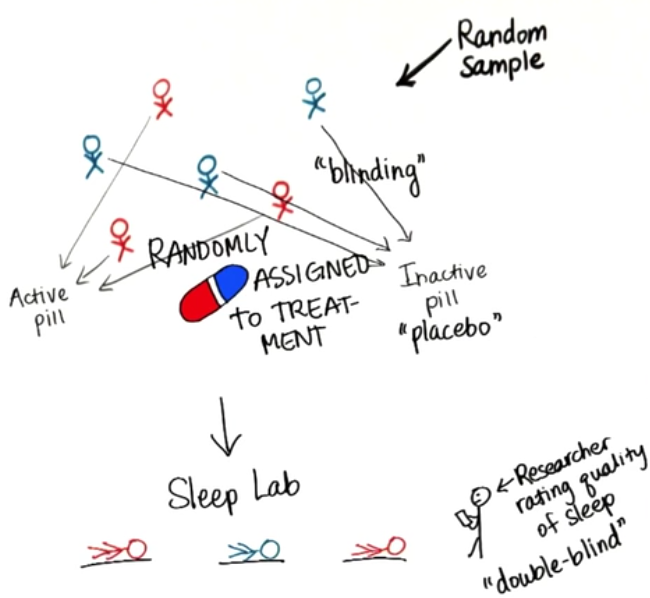 Random
Sample
"blinding"
RANDOMLY
ASSIGNED
to TREAT-
MENT
Active
pill
Inactive
pill
"placebo"
Sleep Lab
Researcher
rating quality
of sleep
"double-blind"